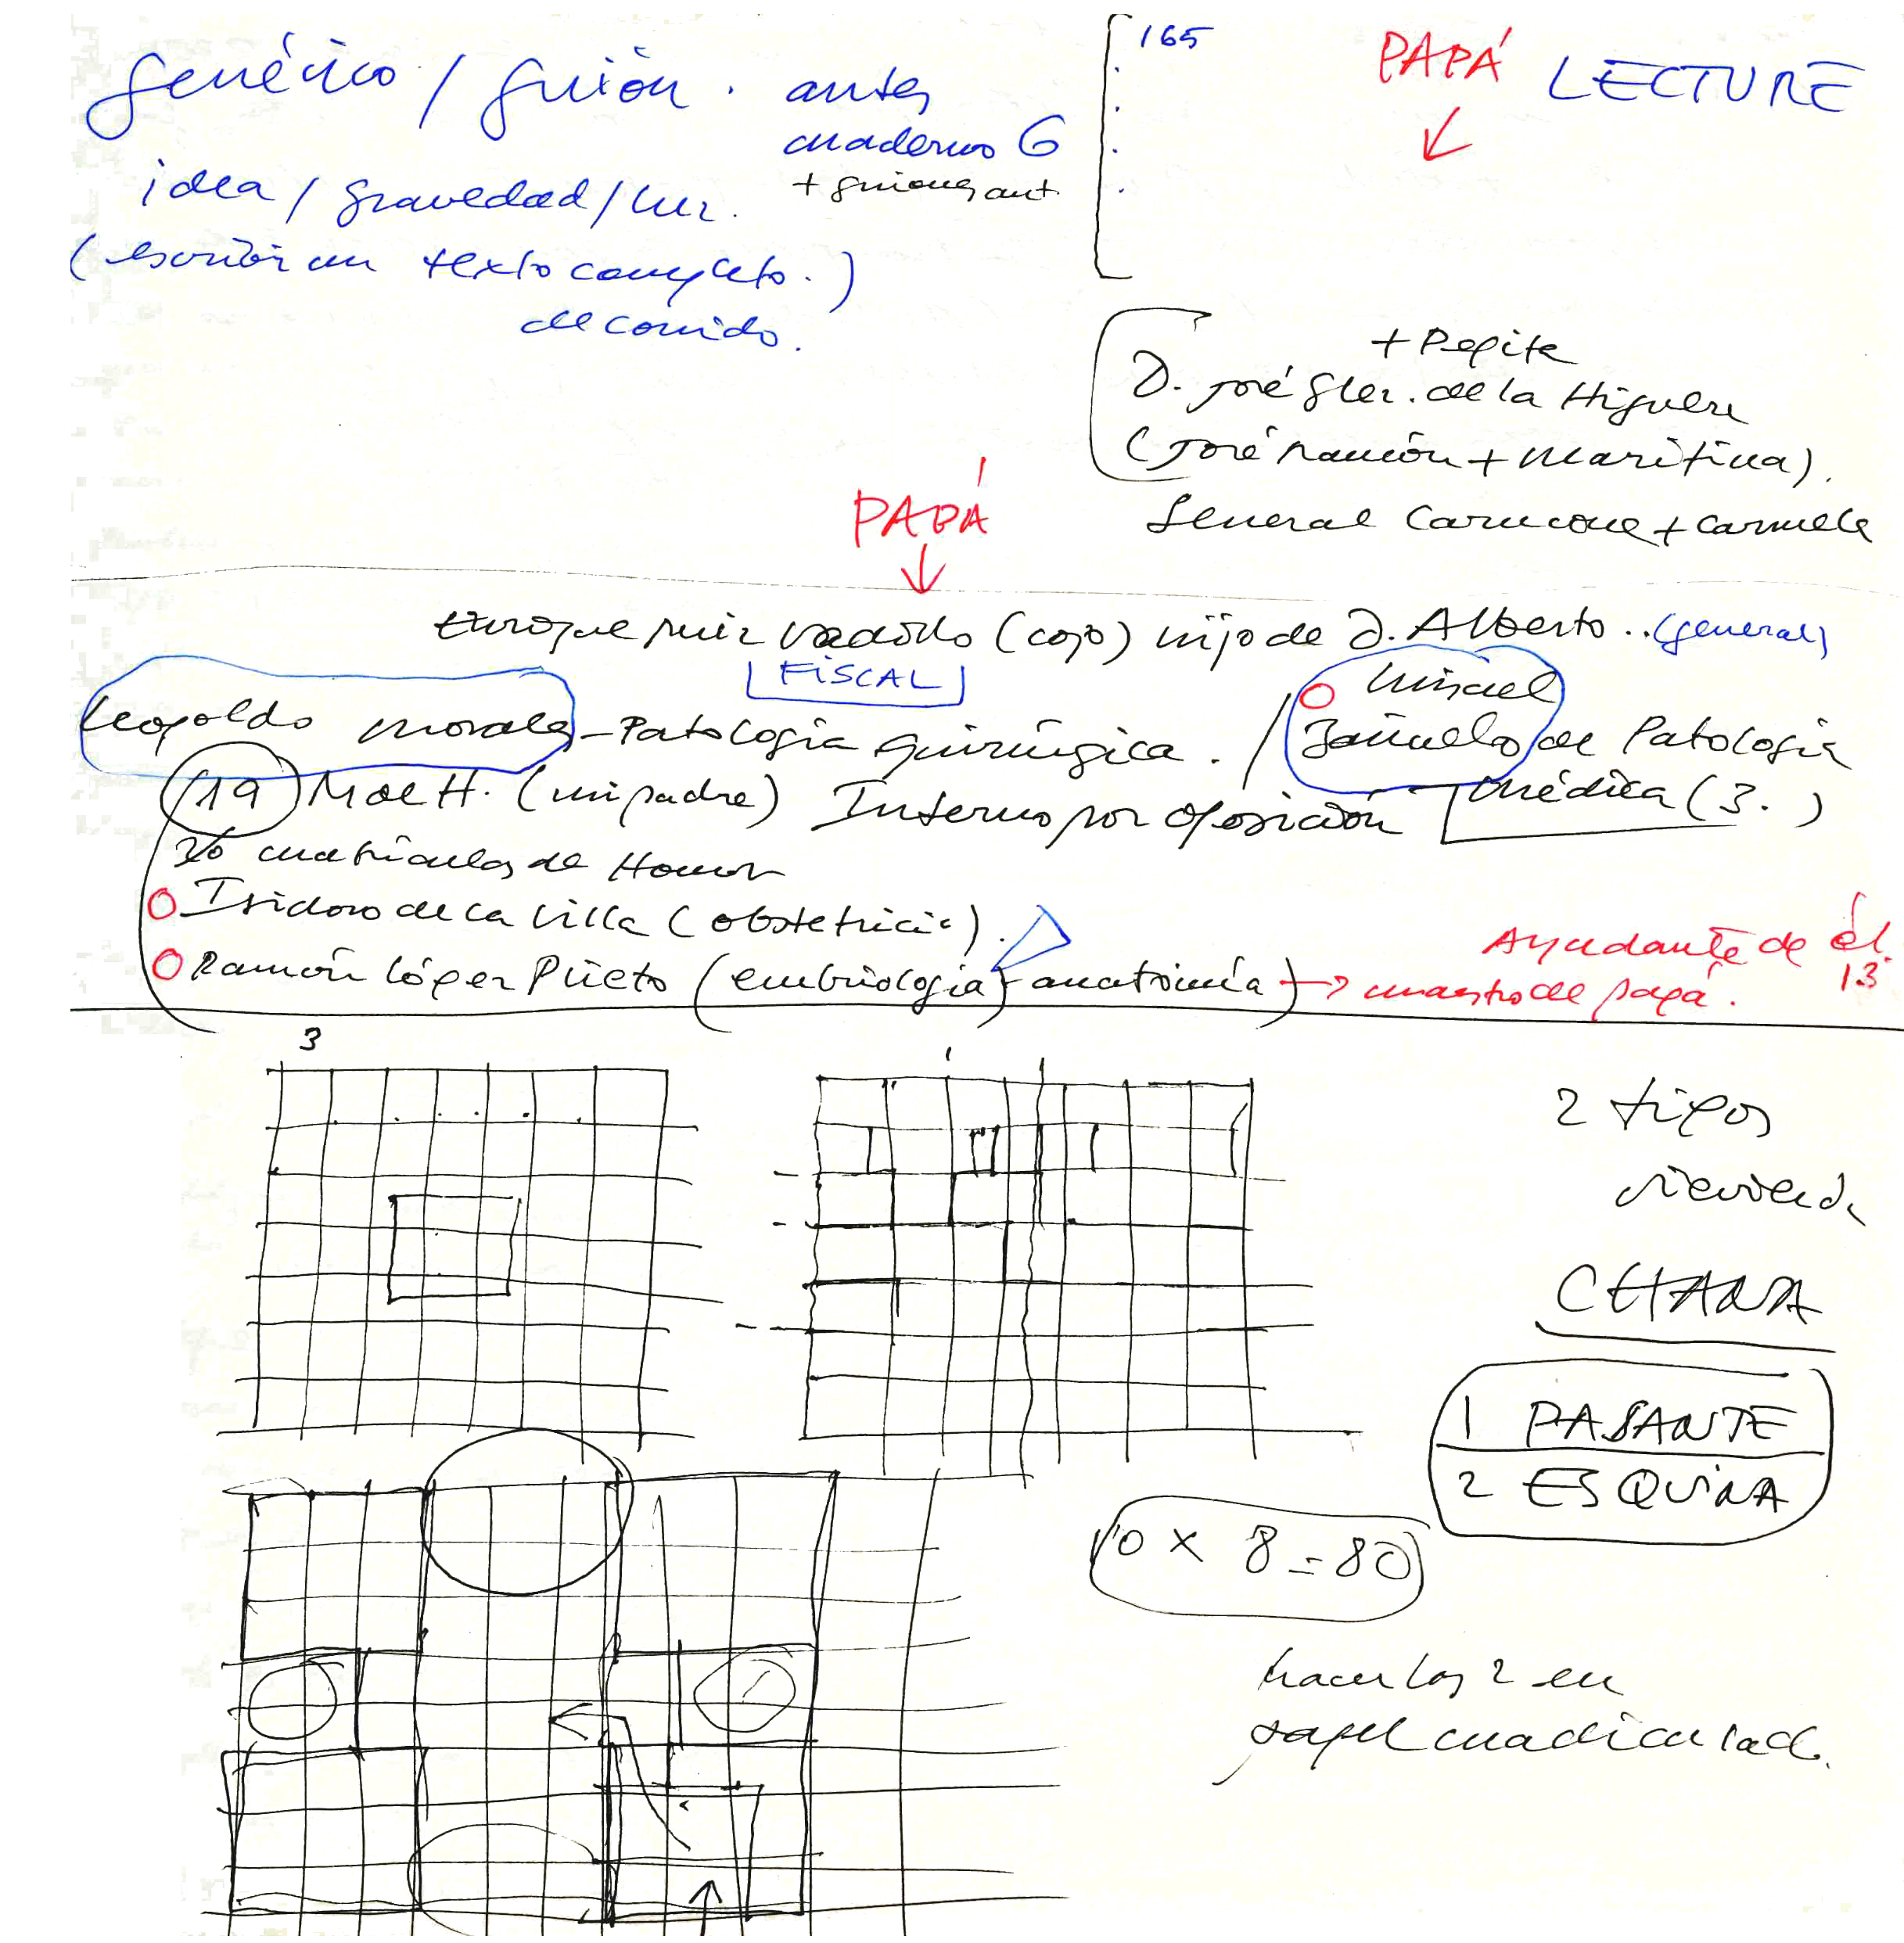 genérico / guión. antes
cuaderno 6
+ guiones ant.
idea / gravedad / luz.
(escribir un texto completo.)
de corrido.
165
PAPÁ LECTURE
+ Pepita
D. José Glez. de la Higuera
(José Ramón + Maritina).
General Carmona + Carmela
PAPÁ
Enrique Ruiz Vadillo (cojo) hijo de D. Alberto .. (general)
FISCAL
Leopoldo Morales - Patología quirúrgica. / Misael
Bañuelos de Patología
médica (3.)
19 M de H. (mi padre) Interno por oposición
matrículas de Honor
Isidoro de la Villa (obstetricia).
Ramón López Prieto (embriología + anatomía) → maestro de papá.
Ayudante de él.
13
3
2 tipos
vivienda
CHANA
1 PASANTE
2 ESQUINA
10 x 8 = 80
hacer los 2 en
papel cuadriculad.